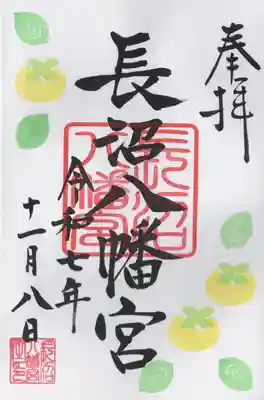 奉拝
長沼八幡宮
令和七年
十一月八日
長沼八幡宮